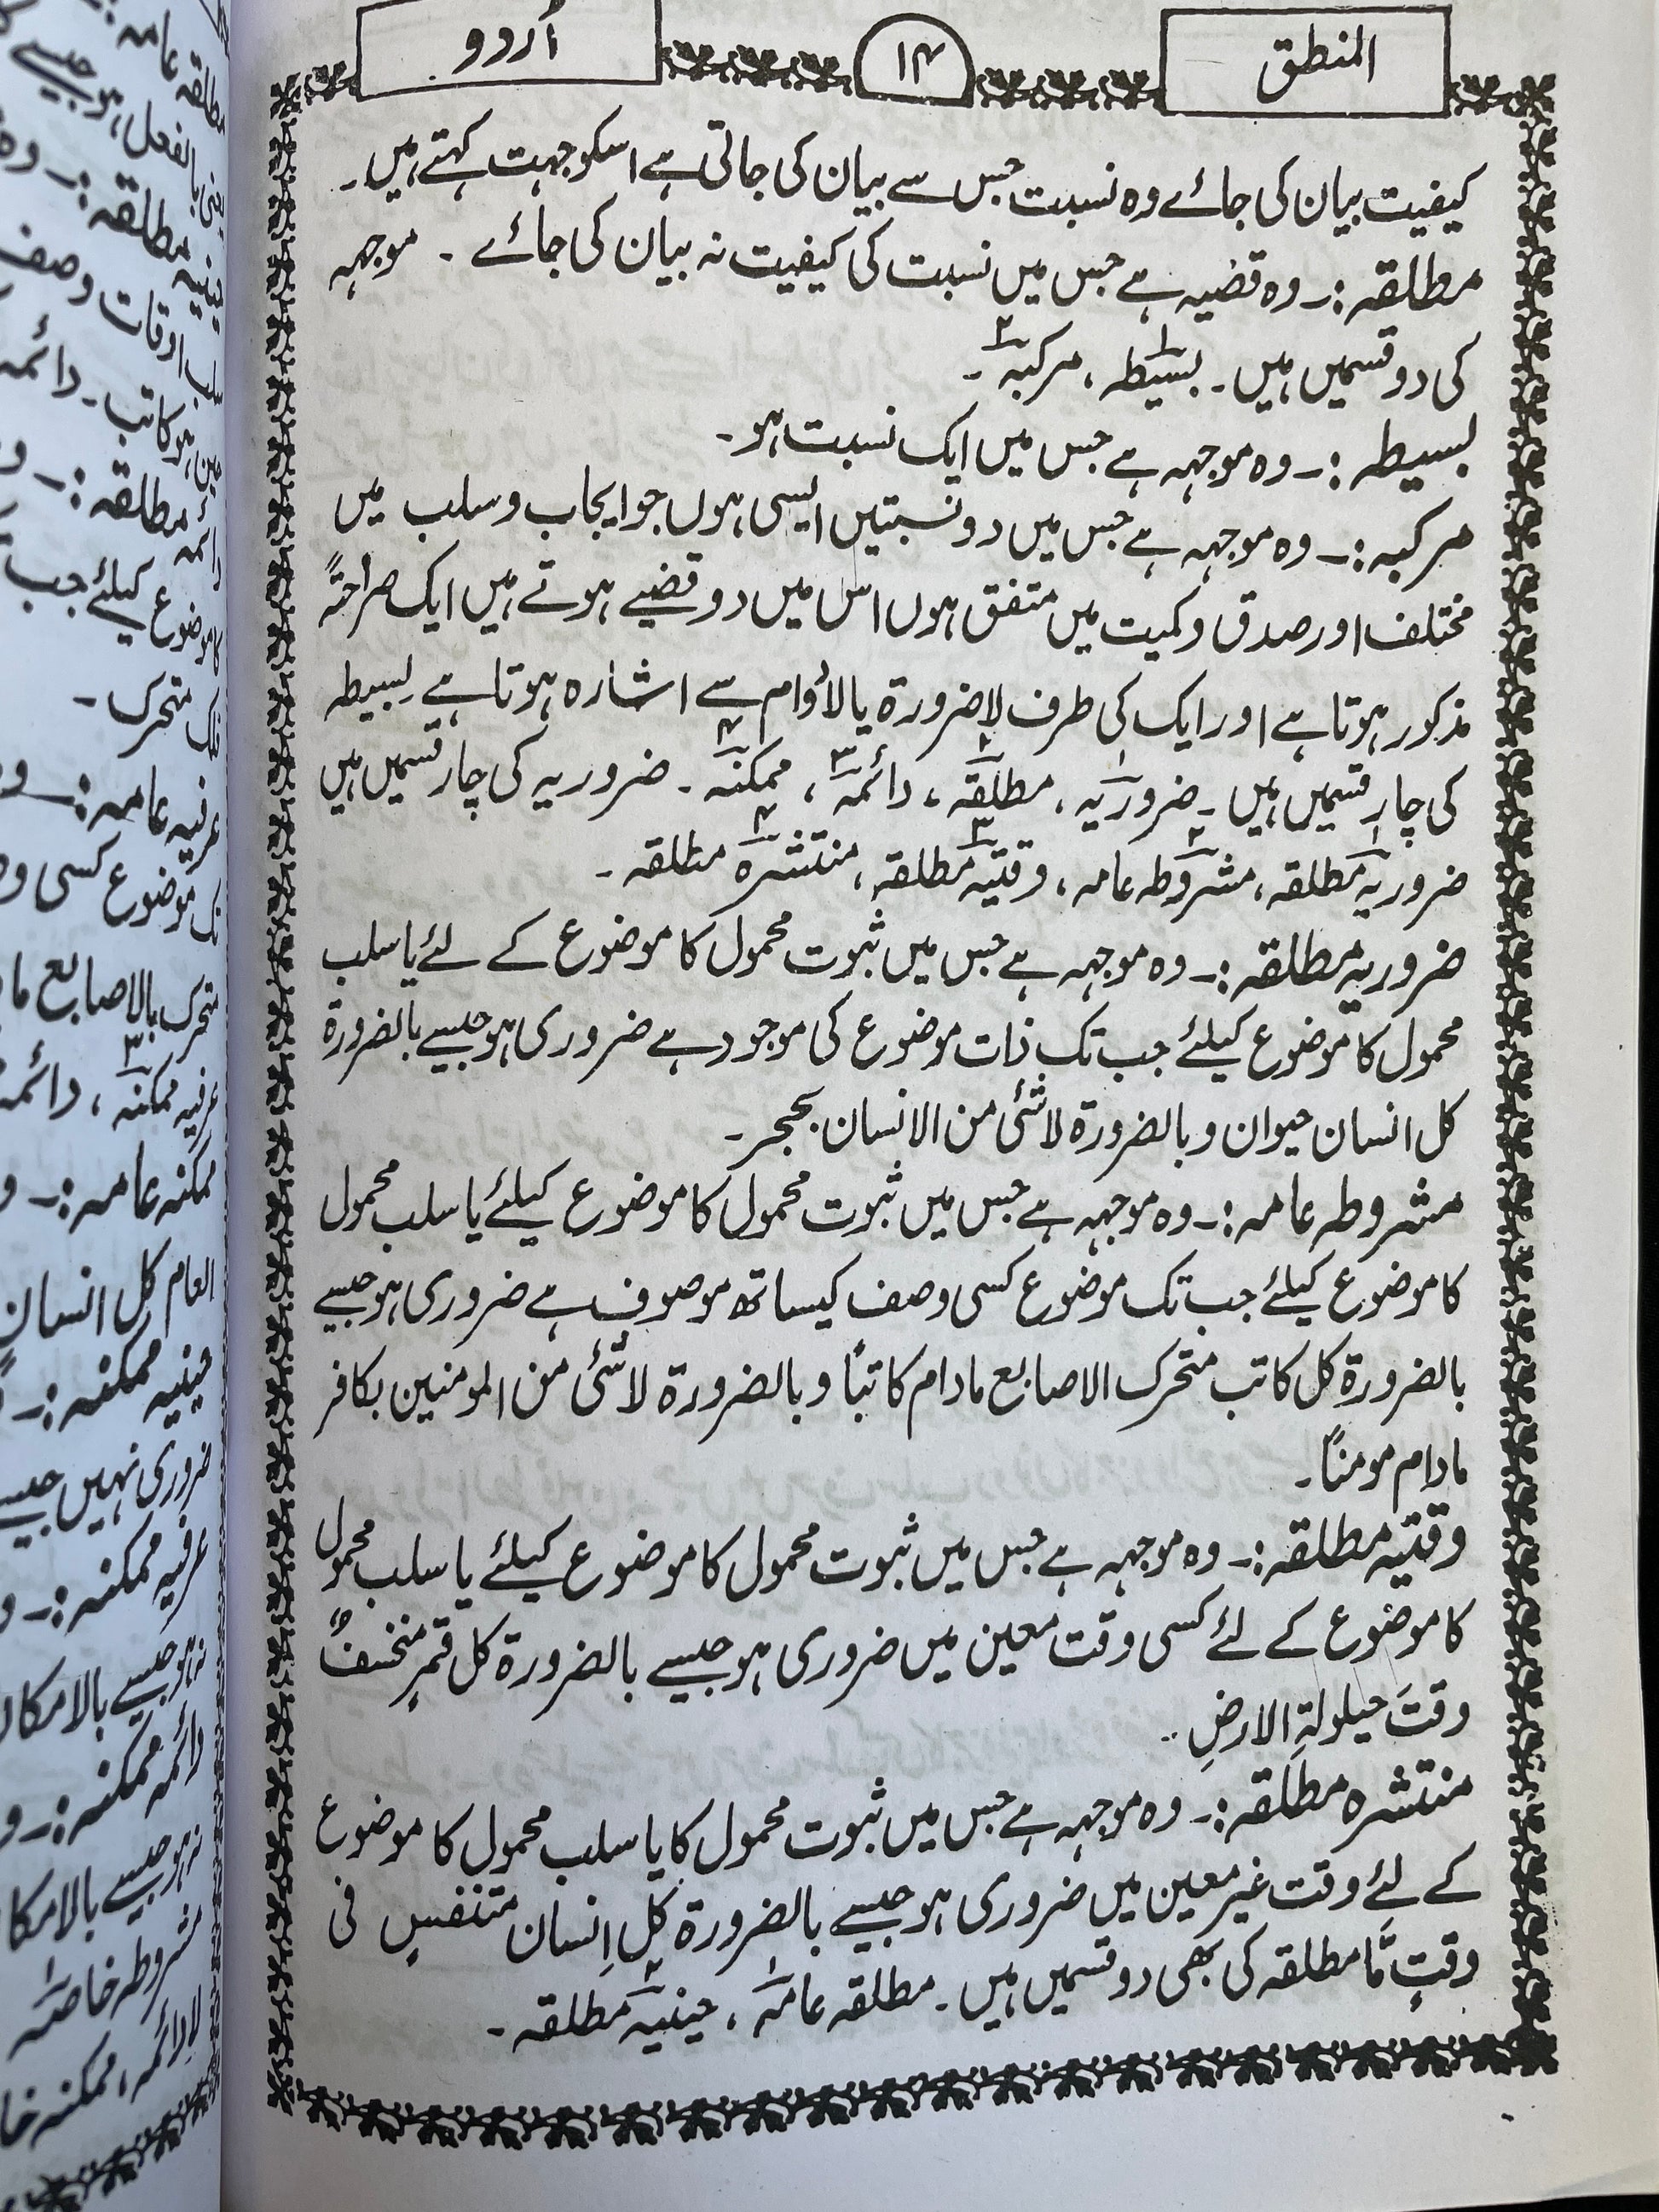 المنطق
۱۴
اُردو
کیفیت بیان کی جائے وہ نسبت جس سے بیان کی جاتی ہے اسکو جہت کہتے ہیں۔
مطلقہ :۔ وہ قضیہ ہے جس میں نسبت کی کیفیت نہ بیان کی جائے ۔ موجہہ
کی دو قسمیں ہیں۔ بسیطہ۱ ، مرکبہ۲ ۔
بسیطہ :۔ وہ موجہہ ہے جس میں ایک نسبت ہو۔
مرکبہ :۔ وہ موجہہ ہے جس میں دو نسبتیں ایسی ہوں جو ایجاب و سلب میں
مختلف اور صدق و کمیت میں متفق ہوں اس میں دو قضیے ہوتے ہیں ایک صراحتہً
مذکور ہوتا ہے اور ایک کی طرف لاضرورۃ یا لادوام سے اشارہ ہوتا ہے بسیطہ
کی چار قسمیں ہیں۔ ضروریہ۱ ، مطلقہ۲ ، دائمہ۳ ، ممکنہ۴ ۔ ضروریہ کی چار قسمیں ہیں
ضروریہ۱ مطلقہ ، مشروطہ۲ عامہ ، وقتیہ۳ مطلقہ ، منتشرہ۴ مطلقہ ۔
ضروریہ مطلقہ :۔ وہ موجہہ ہے جس میں ثبوت محمول کا موضوع کے لئے یا سلب
محمول کا موضوع کیلئے جب تک ذات موضوع کی موجود ہے ضروری ہو جیسے بالضرورۃ
کل انسان حیوان و بالضرورۃ لاشئی من الانسان بحجر ۔
مشروطہ عامہ :۔ وہ موجہہ ہے جس میں ثبوت محمول کا موضوع کیلئے یا سلب محمول
کا موضوع کیلئے جب تک موضوع کسی وصف کیساتھ موصوف ہے ضروری ہو جیسے
بالضرورۃِ کل کاتب متحرک الاصابع مادام کاتباً و بالضرورۃ لاشئی من المومنین بکافر
مادام مومناً ۔
وقتیہ مطلقہ :۔ وہ موجہہ ہے جس میں ثبوت محمول کا موضوع کیلئے یا سلب محمول
کا موضوع کے لئے کسی وقت معین میں ضروری ہو جیسے بالضرورۃ کل قمرٍ منخسفٌ
وقتَ حیلولۃِ الارضِ ۔
منتشرہ مطلقہ :۔ وہ موجہہ ہے جس میں ثبوت محمول کا یا سلب محمول کا موضوع
کے لئے وقت غیر معین میں ضروری ہو جیسے بالضرورۃ کل اِنسان متنفسٍ فی
وقتٍ مَّا مطلقہ کی بھی دو قسمیں ہیں۔ مطلقہ عامہ۱ ، حینیہ۲ مطلقہ ۔